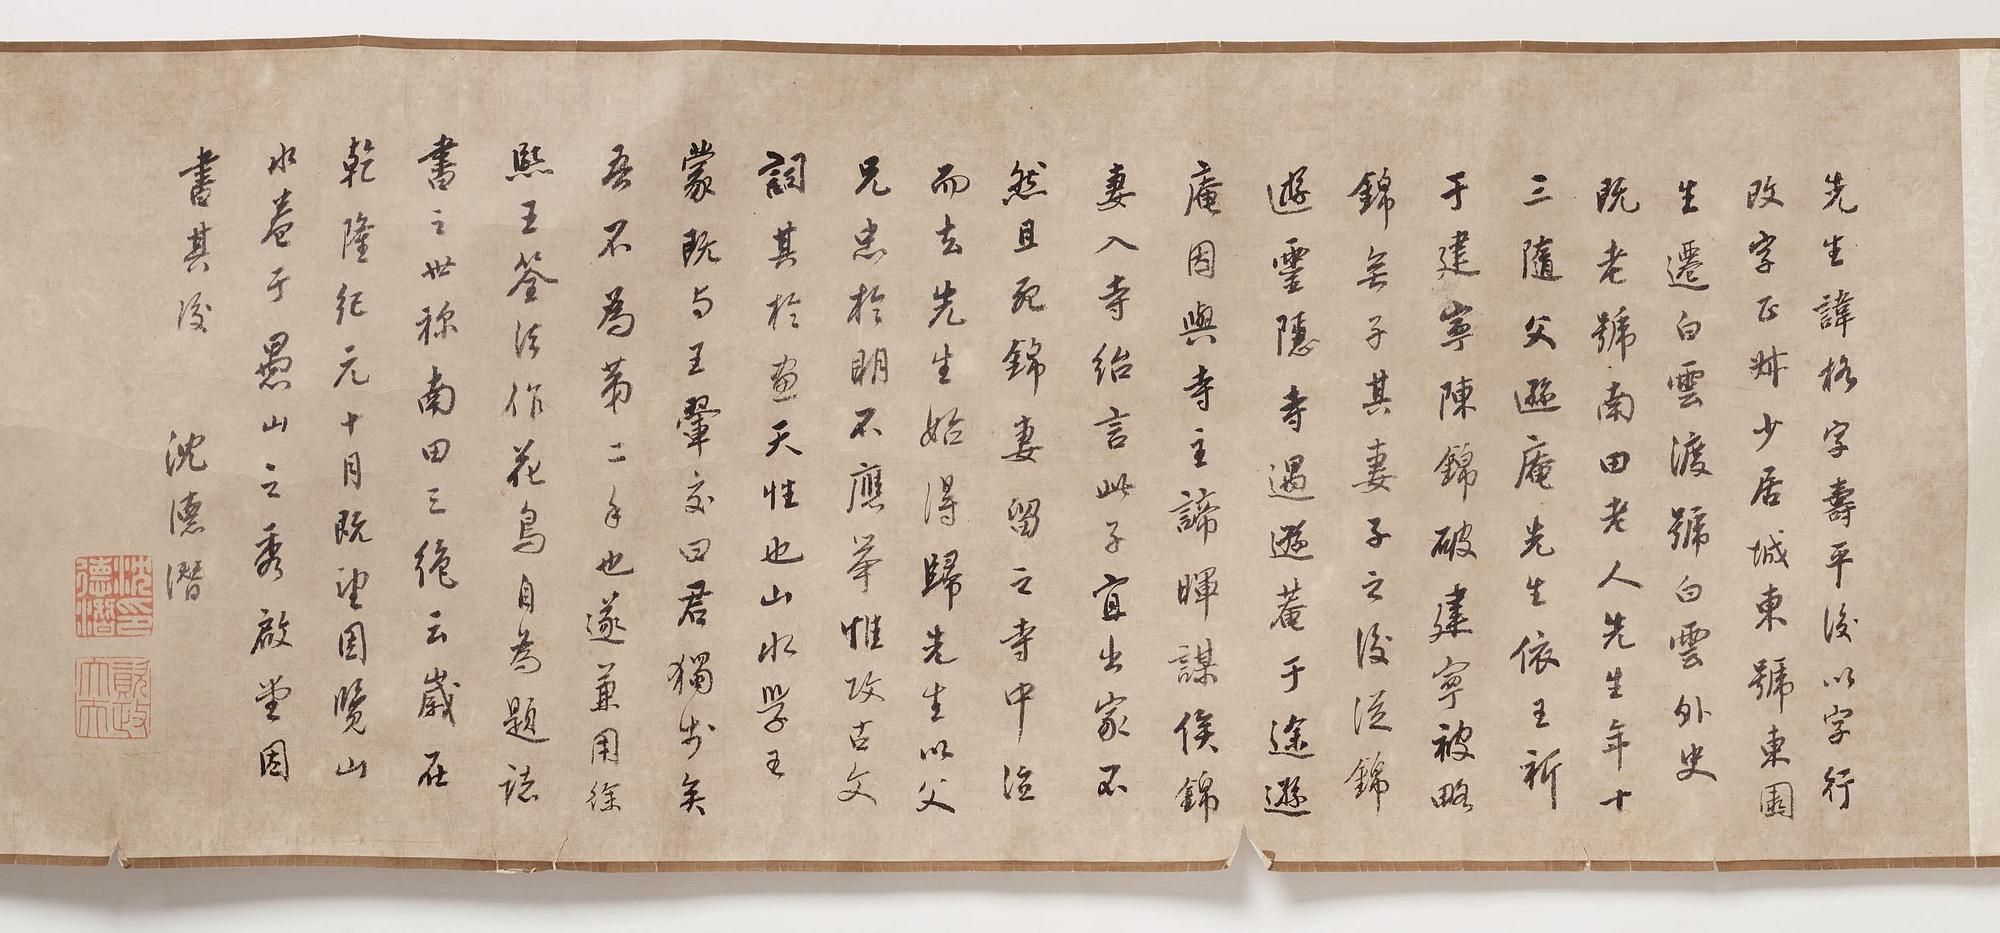 先生諱格字壽平後以字行
改字正叔少居城東號東園
生遷白雲渡號白雲外史
既老號南田老人先生年十
三隨父遜庵先生依王祈
于建寧陳錦破建寧被略
錦無子其妻子之後從錦
遊靈隱寺遇遜菴于途遜
庵因與寺主諦暉謀俟錦
妻入寺紿言此子宜出家不
然且死錦妻留之寺中泣
而去先生始得歸先生以父
兄忠於明不應舉惟攻古文
詞其於畫天性也山水學王
蒙既與王翬交曰君獨步矣
吾不為第二手也遂兼用徐
熙王荃法作花鳥自為題誌
書之世稱南田三絕云歲在
乾隆紀元十月既望因覽山
水卷于愚山之秀啟堂因
書其後
沈德潛
沈印德潛